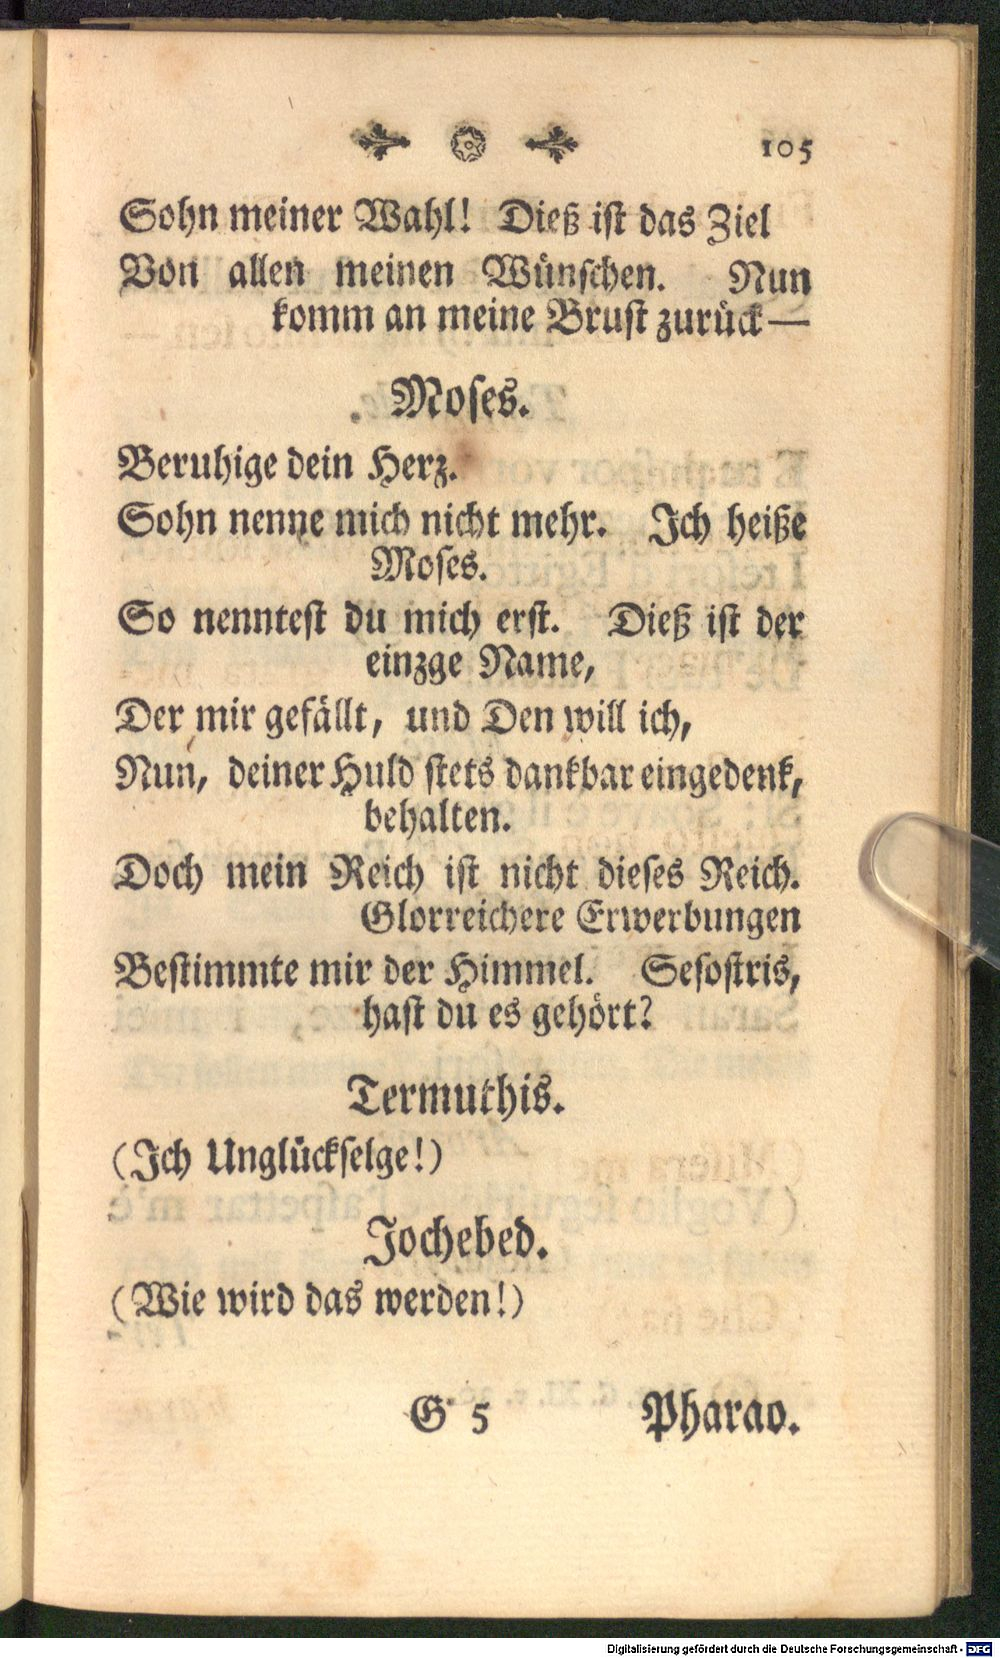 105
Sohn meiner Wahl! Dieß ist das Ziel
Von allen meinen Wünschen. Nun
komm an meine Brust zurück—
Moses.
Beruhige dein Herz.
Sohn nenne mich nicht mehr. Ich heiße
Moses.
So nenntest du mich erst. Dieß ist der
einzge Name,
Der mir gefällt, und Den will ich,
Nun, deiner Huld stets dankbar eingedenk,
behalten.
Doch mein Reich ist nicht dieses Reich.
Glorreichere Erwerbungen
Bestimmte mir der Himmel. Sesostris,
hast du es gehört?
Termuthis.
(Ich Unglückselge!)
Jochebed.
(Wie wird das werden!)
G 5 Pharao.
Digitalisierung gefördert durch die Deutsche Forschungsgemeinschaft - DFG